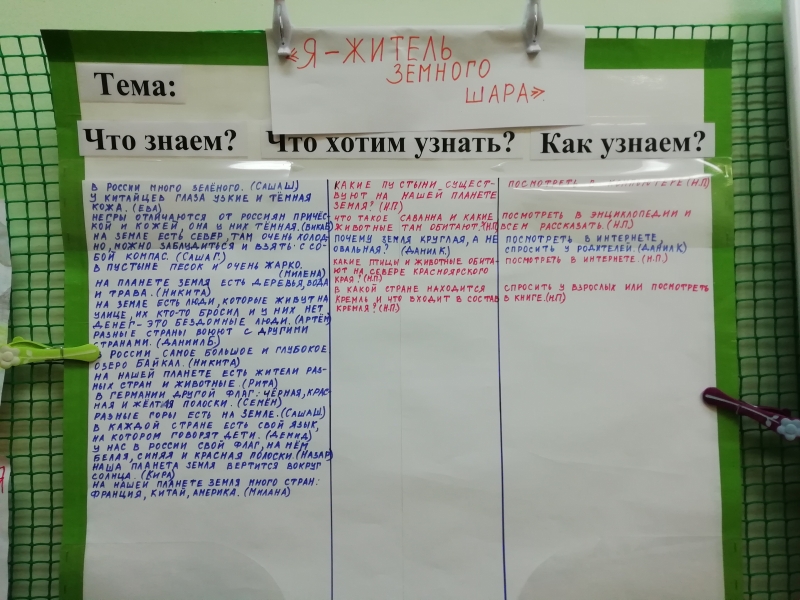 «Я-ЖИТЕЛЬ
ЗЕМНОГО
ШАРА»
Тема:
Что знаем?
Что хотим узнать?
Как узнаем?
В РОССИИ МНОГО ЗЕЛЁНОГО. (САШАШ)
У КИТАЙЦЕВ ГЛАЗА УЗКИЕ И ТЁМНАЯ
КОЖА. (ЕВА)
НЕГРЫ ОТЛИЧАЮТСЯ ОТ РОССИЯН ПРИЧЁС-
КОЙ И КОЖЕЙ, ОНА У НИХ ТЁМНАЯ. (ВИКАЕ)
НА ЗЕМЛЕ ЕСТЬ СЕВЕР, ТАМ ОЧЕНЬ ХОЛОД-
НО, МОЖНО ЗАБЛУДИТЬСЯ И ВЗЯТЬ С СО-
БОЙ КОМПАС. (САШАГ.)
В ПУСТЫНЕ ПЕСОК И ОЧЕНЬ ЖАРКО.
(МИЛЕНА)
НА ПЛАНЕТЕ ЗЕМЛЯ ЕСТЬ ДЕРЕВЬЯ, ВОДА
И ТРАВА. (НИКИТА)
НА ЗЕМЛЕ ЕСТЬ ЛЮДИ, КОТОРЫЕ ЖИВУТ НА
УЛИЦЕ, ИХ КТО-ТО БРОСИЛ И У НИХ НЕТ
ДЕНЕГ - ЭТО БЕЗДОМНЫЕ ЛЮДИ. (АРТЁМ)
РАЗНЫЕ СТРАНЫ ВОЮЮТ С ДРУГИМИ
СТРАНАМИ. (ДАНИИЛ Б)
РОССИИ САМОЕ БОЛЬШОЕ И ГЛУБОКОЕ
ОЗЕРО БАЙКАЛ. (НИКИТА)
НА НАШЕЙ ПЛАНЕТЕ ЕСТЬ ЖИТЕЛИ РАЗ-
НЫХ СТРАН И ЖИВОТНЫЕ. (РИТА)
В ГЕРМАНИИ ДРУГОЙ ФЛАГ: ЧЁРНАЯ, КРАС-
НАЯ И ЖЁЛТАЯ ПОЛОСКИ. (СЕМЁН)
РАЗНЫЕ ГОРЫ ЕСТЬ НА ЗЕМЛЕ. (САШАШ)
В КАЖДОЙ СТРАНЕ ЕСТЬ СВОЙ ЯЗЫК,
НА КОТОРОМ ГОВОРЯТ ДЕТИ. (ДЕМИД)
У НАС В РОССИИ СВОЙ ФЛАГ, НА НЁМ
БЕЛАЯ, СИНЯЯ И КРАСНАЯ ПОЛОСКИ. (НАЗАР)
НАША ПЛАНЕТА ЗЕМЛЯ ВЕРТИТСЯ ВОКРУГ
СОЛНЦА. (КИРА)
НА НАШЕЙ ПЛАНЕТЕ ЗЕМЛЯ МНОГО СТРАН:
ФРАНЦИЯ, КИТАЙ, АМЕРИКА. (МИЛАНА)
КАКИЕ ПУСТЫНИ СУЩЕСТ-
ВУЮТ НА НАШЕЙ ПЛАНЕТЕ
ЗЕМЛЯ? (Н.П)
ЧТО ТАКОЕ САВАННА И КАКИЕ
ЖИВОТНЫЕ ТАМ ОБИТАЮТ? (Н.П)
ПОЧЕМУ ЗЕМЛЯ КРУГЛАЯ, А НЕ
ОВАЛЬНАЯ? (ДАНИЛ К)
КАКИЕ ПТИЦЫ И ЖИВОТНЫЕ ОБИТА-
ЮТ НА СЕВЕРЕ КРАСНОЯРСКОГО
КРАЯ? (Н.П)
В КАКОЙ СТРАНЕ НАХОДИТСЯ
КРЕМЛЬ И ЧТО ВХОДИТ В СОСТАВ
КРЕМЛЯ? (Н.П)
ПОСМОТРЕТЬ В (Н.П)
ПОСМОТРЕТЬ В ЭНЦИКЛОПЕДИИ И
ВСЕМ РАССКАЗАТЬ. (Н.П.)
ПОСМОТРЕТЬ В ИНТЕРНЕТЕ,
СПРОСИТЬ У РОДИТЕЛЕЙ. (ДАНИЛ К)
ПОСМОТРЕТЬ В ИНТЕРНЕТЕ. (Н.П.)
СПРОСИТЬ У ВЗРОСЛЫХ ИЛИ ПОСМОТРЕТЬ
В КНИГЕ. (Н.П)